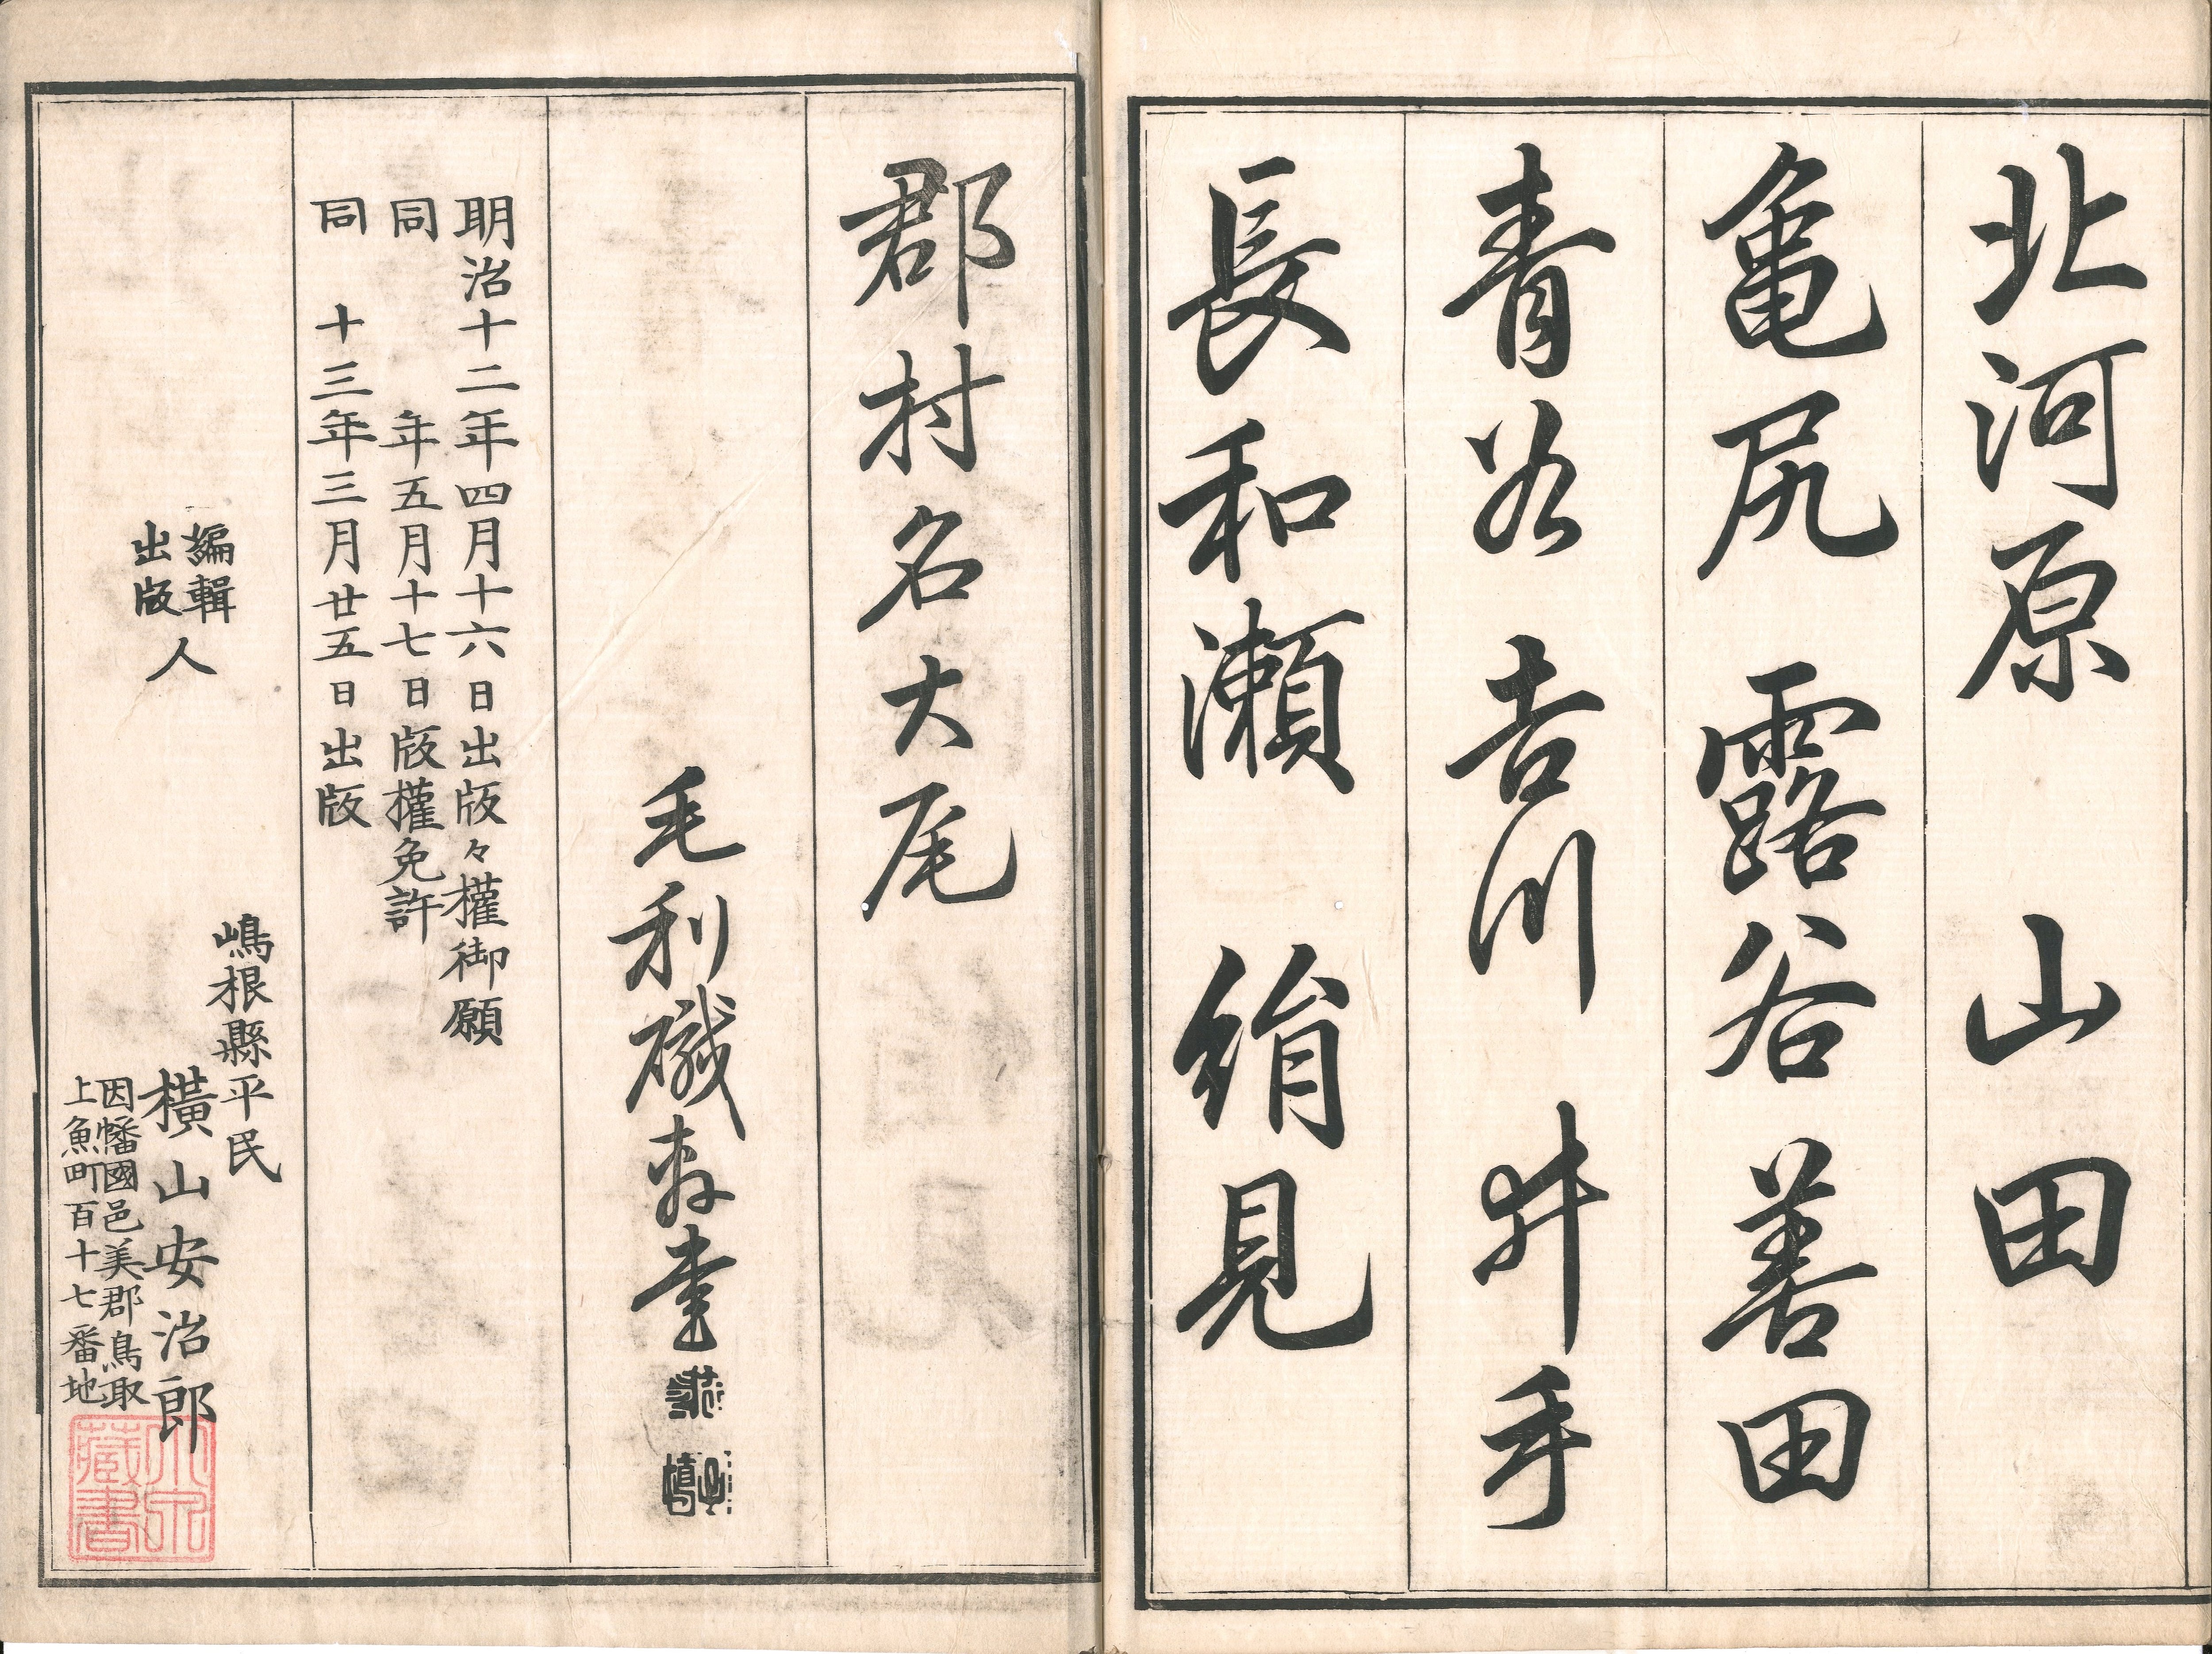 北河原 山田
亀尻 露谷 善田
青谷 吉川 井手
長和瀬 絹見
郡村名大尾
毛利 書
明治十二年四月十六日出版々權御願
同 年五月十七日版權免許
同 十三年三月廿五日出版
編輯
出版
人
嶋根縣平民
橫山安治郎
因幡國邑美郡鳥取
上魚町百十七番地
藏書